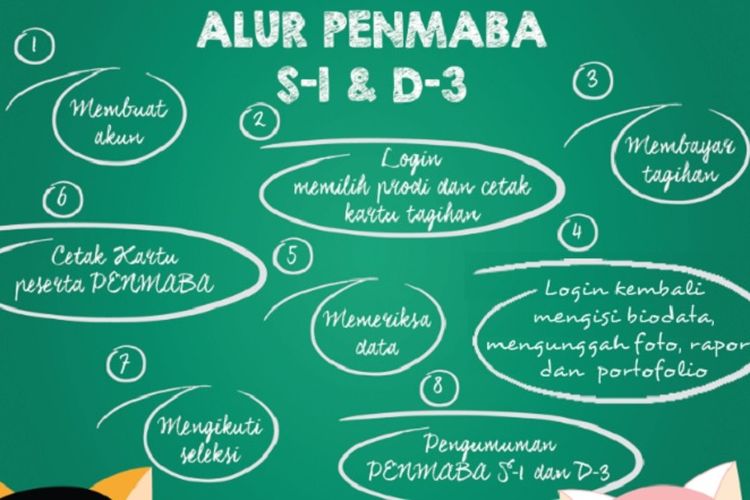 ALUR PENMABA
S-1 & D-3
1
Membuat
akun
2
Login
memilih prodi dan cetak
kartu tagihan
3
Membayar
tagihan
4
Login kembali
mengisi biodata,
mengunggah foto, rapor
dan portofolio
5
Memeriksa
data
6
Cetak Kartu
peserta PENMABA
7
Mengikuti
seleksi
8
Pengumuman
PENMABA S-1 dan D-3